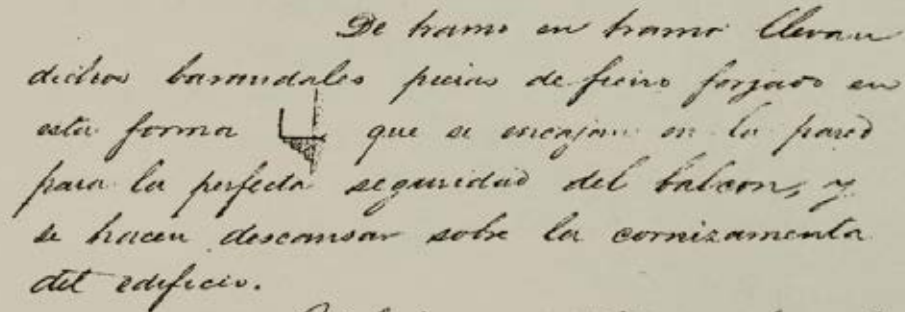 De tramo en tramo llevan
dichos barandales piezas de fierro forjado en
esta forma que se encajan en la pared
para la perfecta seguridad del balcon, y
se hacen descansar sobre la cornizamenta
del edificio.